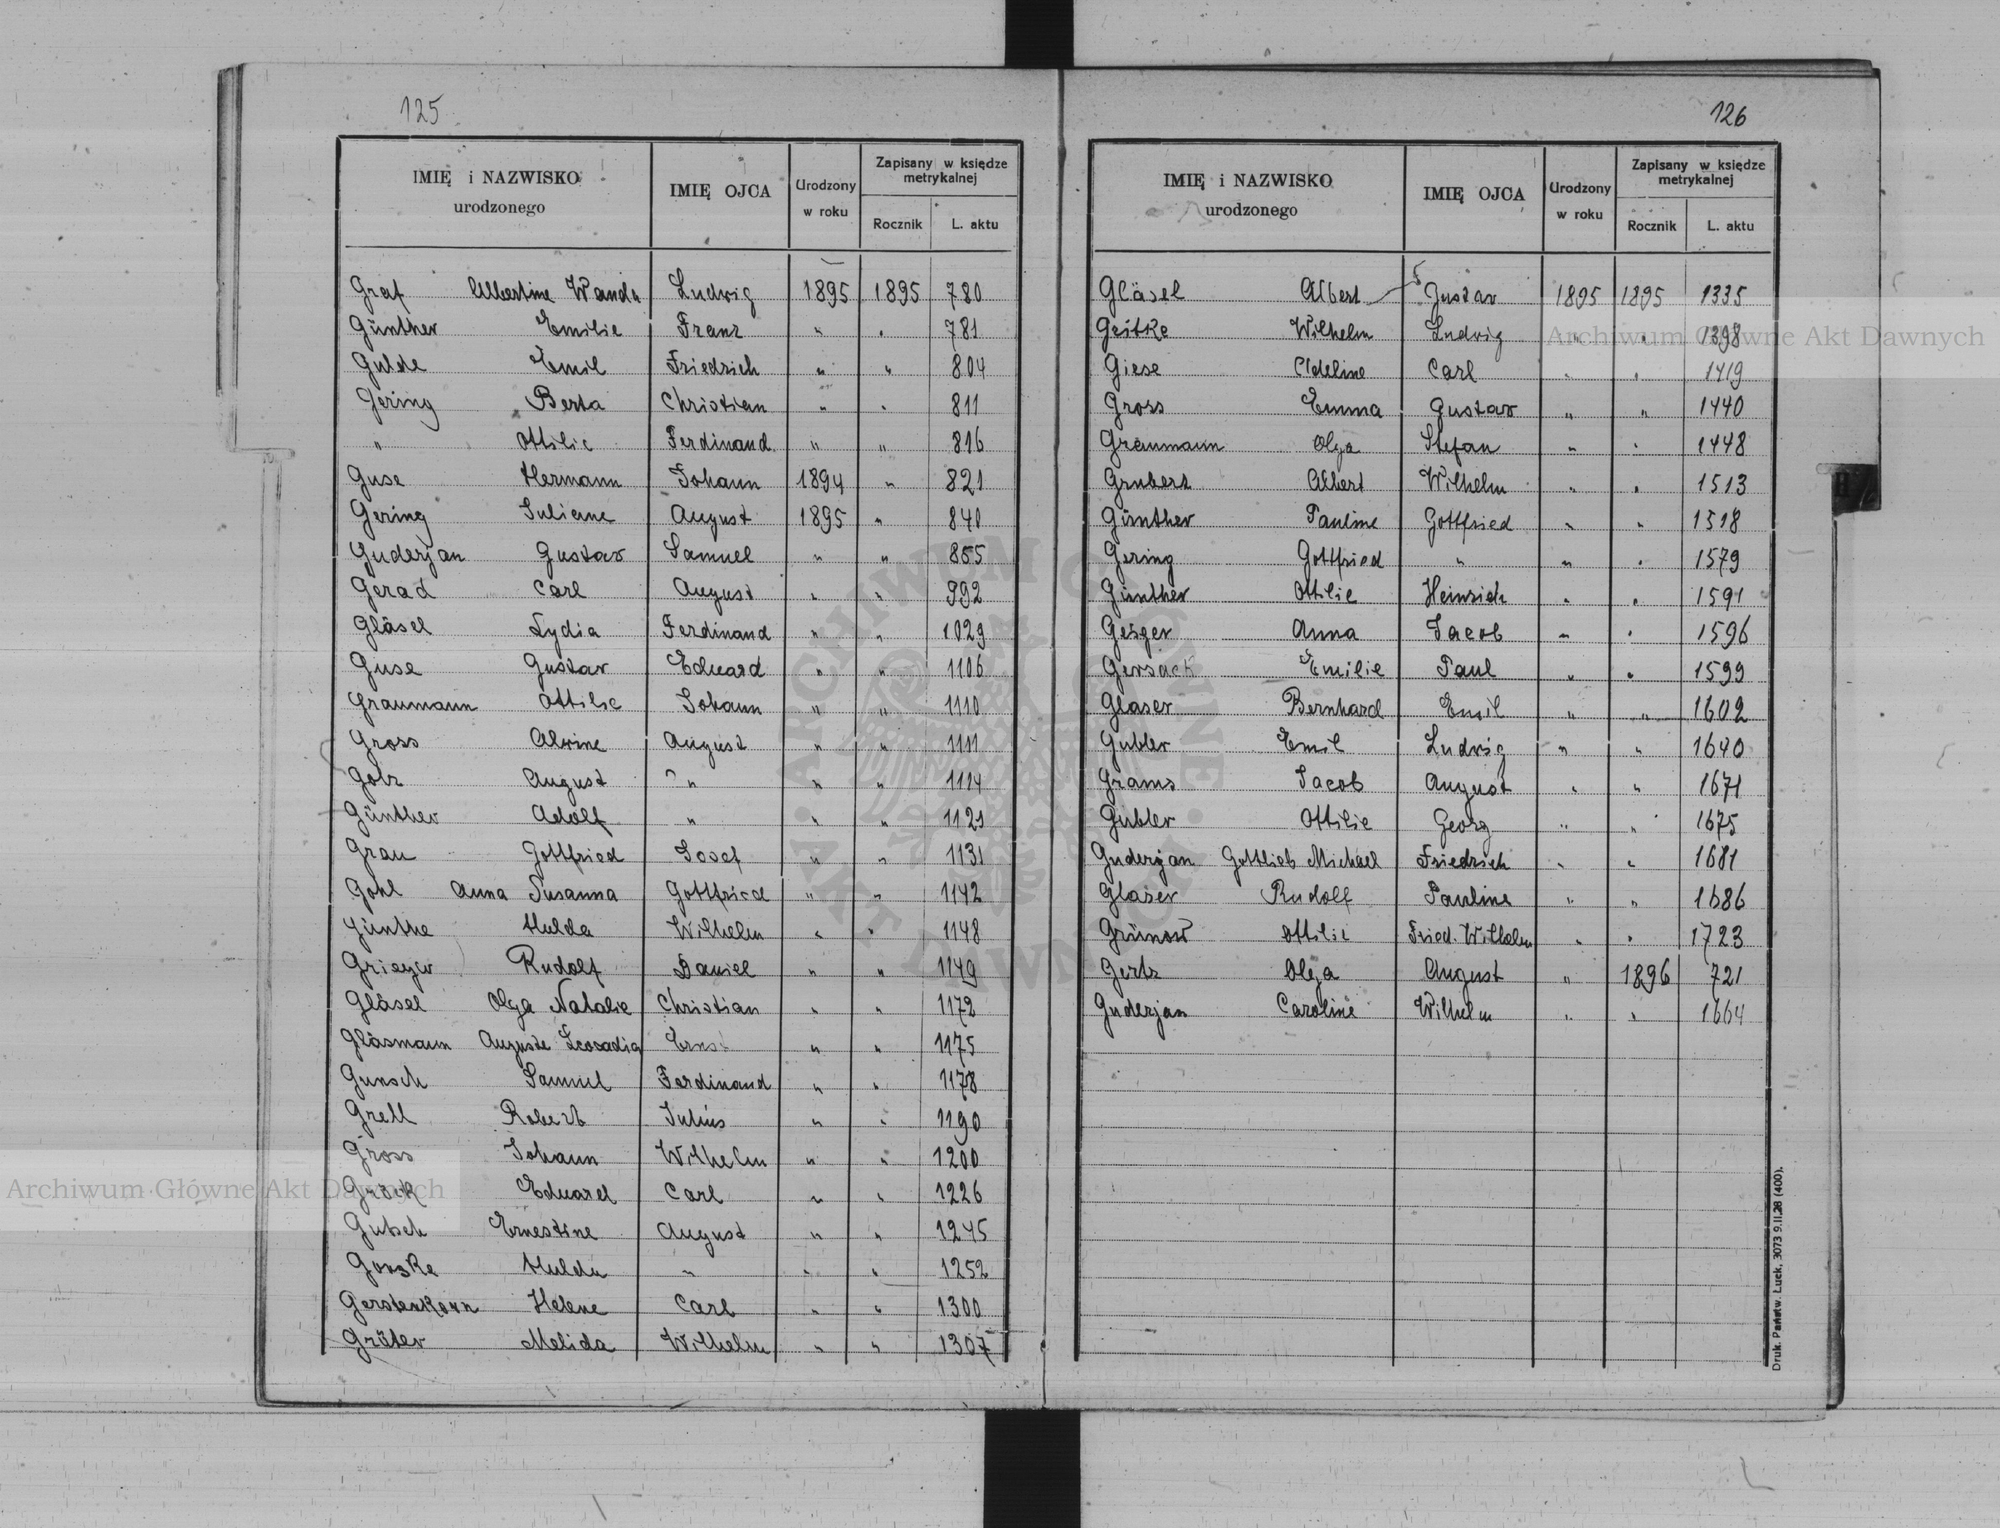 125
IMIĘ i NAZWISKO urodzonego IMIĘ OJCA Urodzony w roku Zapisany w księdze metrykalnej Rocznik L. aktu
Graf Albertine Wanda Ludwig 1895 1895 780
Günther Emilie Franz " " 781
Gulde Emil Friedrich " " 804
Gering Berta Christian " " 811
" Ottilie Ferdinand " " 816
Guse Hermann Johann 1894 " 821
Gering Juliane August 1895 " 840
Guderjan Gustav Samuel " " 855
Gerad Carl August " " 992
Gläsel Lydia Ferdinand " " 1029
Guse Gustav Eduard " " 1106
Graumann Ottilie Johann " " 1110
Gross Alwine August " " 1111
Golz August ? " " " 1114
Günther Adolf " " " 1121
Grau Gottfried Josef " " 1131
Gohl Anna Susanna Gottfried " " 1142
Günthe Hulda Wilhelm " " 1148
Rudolf Daniel " " 1149
Gläsel Olga Natalie Christian " " 1172
Gläsmann Auguste Leocadia Ernst " " 1175
Gunsch Samuel Ferdinand " " 1178
Grell Robert Julius " " 1190
Gross Johann Wilhelm " " 1200
Eduard Carl " " 1226
Gutsch Ernestine August " " 1245
Gorzke Hulda " " " 1252
Gerstenkorn Helene Carl " " 1300
Gräter Melida Wilhelm " " 1307
126
IMIĘ i NAZWISKO urodzonego IMIĘ OJCA Urodzony w roku Zapisany w księdze metrykalnej Rocznik L. aktu
Gläsel Albert Gustav 1895 1895 1335
Geitke Wilhelm Ludwig " " 1398
Giese Adeline Carl " " 1419
Gross Emma Gustav " " 1440
Graumann Olga Stefan " " 1448
Grubert Albert Wilhelm " " 1513
Günther Pauline Gottfried " " 1518
Gering Gottfried " " " 1579
Günther Ottilie Heinrich " " 1591
Geiger Anna Jacob " " 1596
Gersack Emilie Paul " " 1599
Glaser Bernhard Emil " " 1602
Gubler Emil Ludwig " " 1640
Grams Jacob August " " 1671
Gubler Ottilie Georg " " 1675
Guderjan Gottlieb Michael Friedrich " " 1681
Glaser Rudolf Pauline " " 1686
Grünow Ottilie Fried. Wilhelm " " 1723
Gertz Olga August " 1896 721
Guderjan Caroline Wilhelm " " 1664
Druk. Państw. Łuck, 3073 9.II.28 (400).
Archiwum Główne Akt Dawnych
Archiwum Główne Akt Dawnych
ARCHIWUM GŁÓWNE AKT DAWNYCH